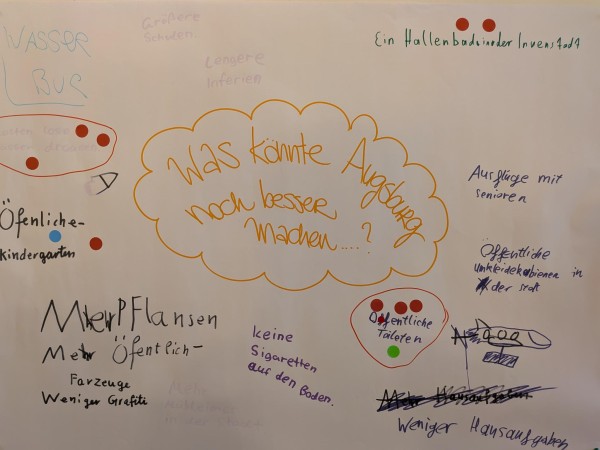 WASSER
BUS
Größere
Schulen
Längere
Ferien
Ein Hallenbad in der Innenstadt
Was könnte Augsburg
noch besser
machen....?
Öfenliche-
kindergarten
Ausflüge mit
senioren
Öffentliche
umkleidekabienen in
der stat
MerPflansen
Mehr Öfentlich-
Farzeuge
Weniger Grafiti
keine
Sigaretten
auf den Boden.
Öffentliche
Toileten
Mehr Hausaufgaben
Weniger Hausaufgaben